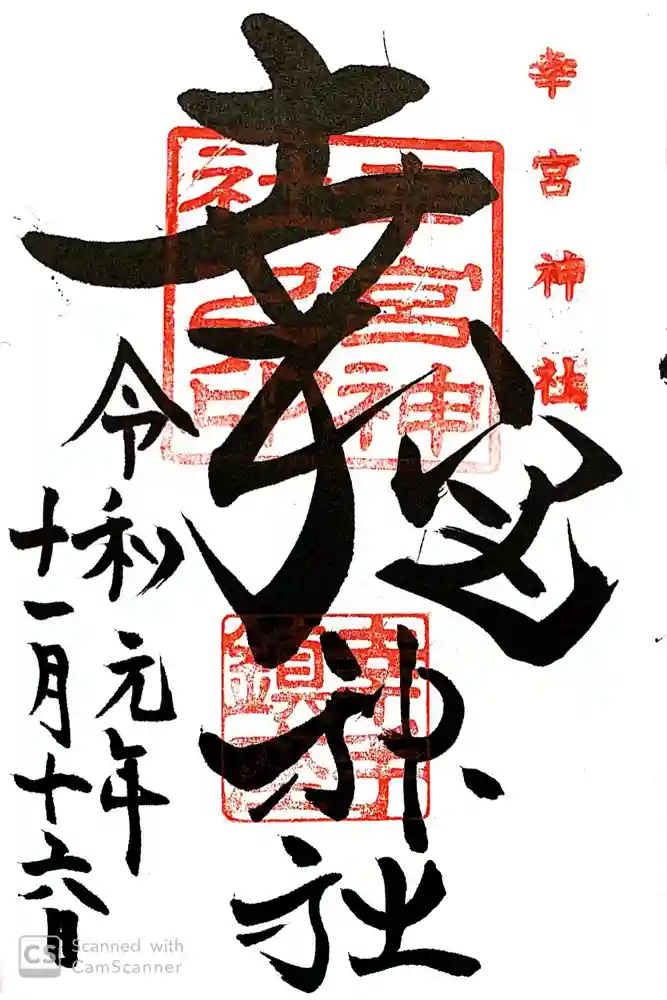 幸宮神社
幸宮神社
幸宮神
社之印
令和元年
十一月十六日
CS Scanned with
CamScanner